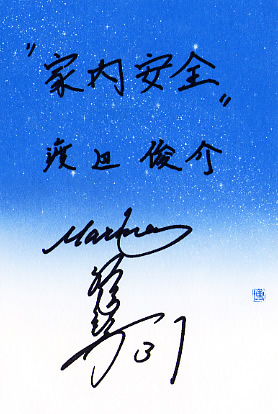 "家内安全"
渡辺 俊介
Marines
31